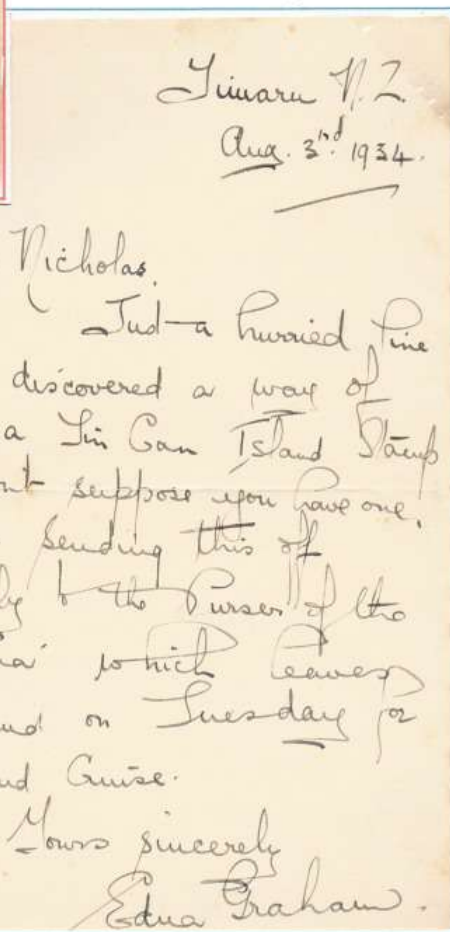 Timaru N.Z.
Aug. 3rd. 1934.
Nicholas,
Just a hurried line
discovered a way of
a Tin Can Island Stamp
nt suppose you have one,
sending this off
by to the Purser of the
ia' which leaves
nd on Tuesday for
nd Cruise.
Yours sincerely
Edna Graham.